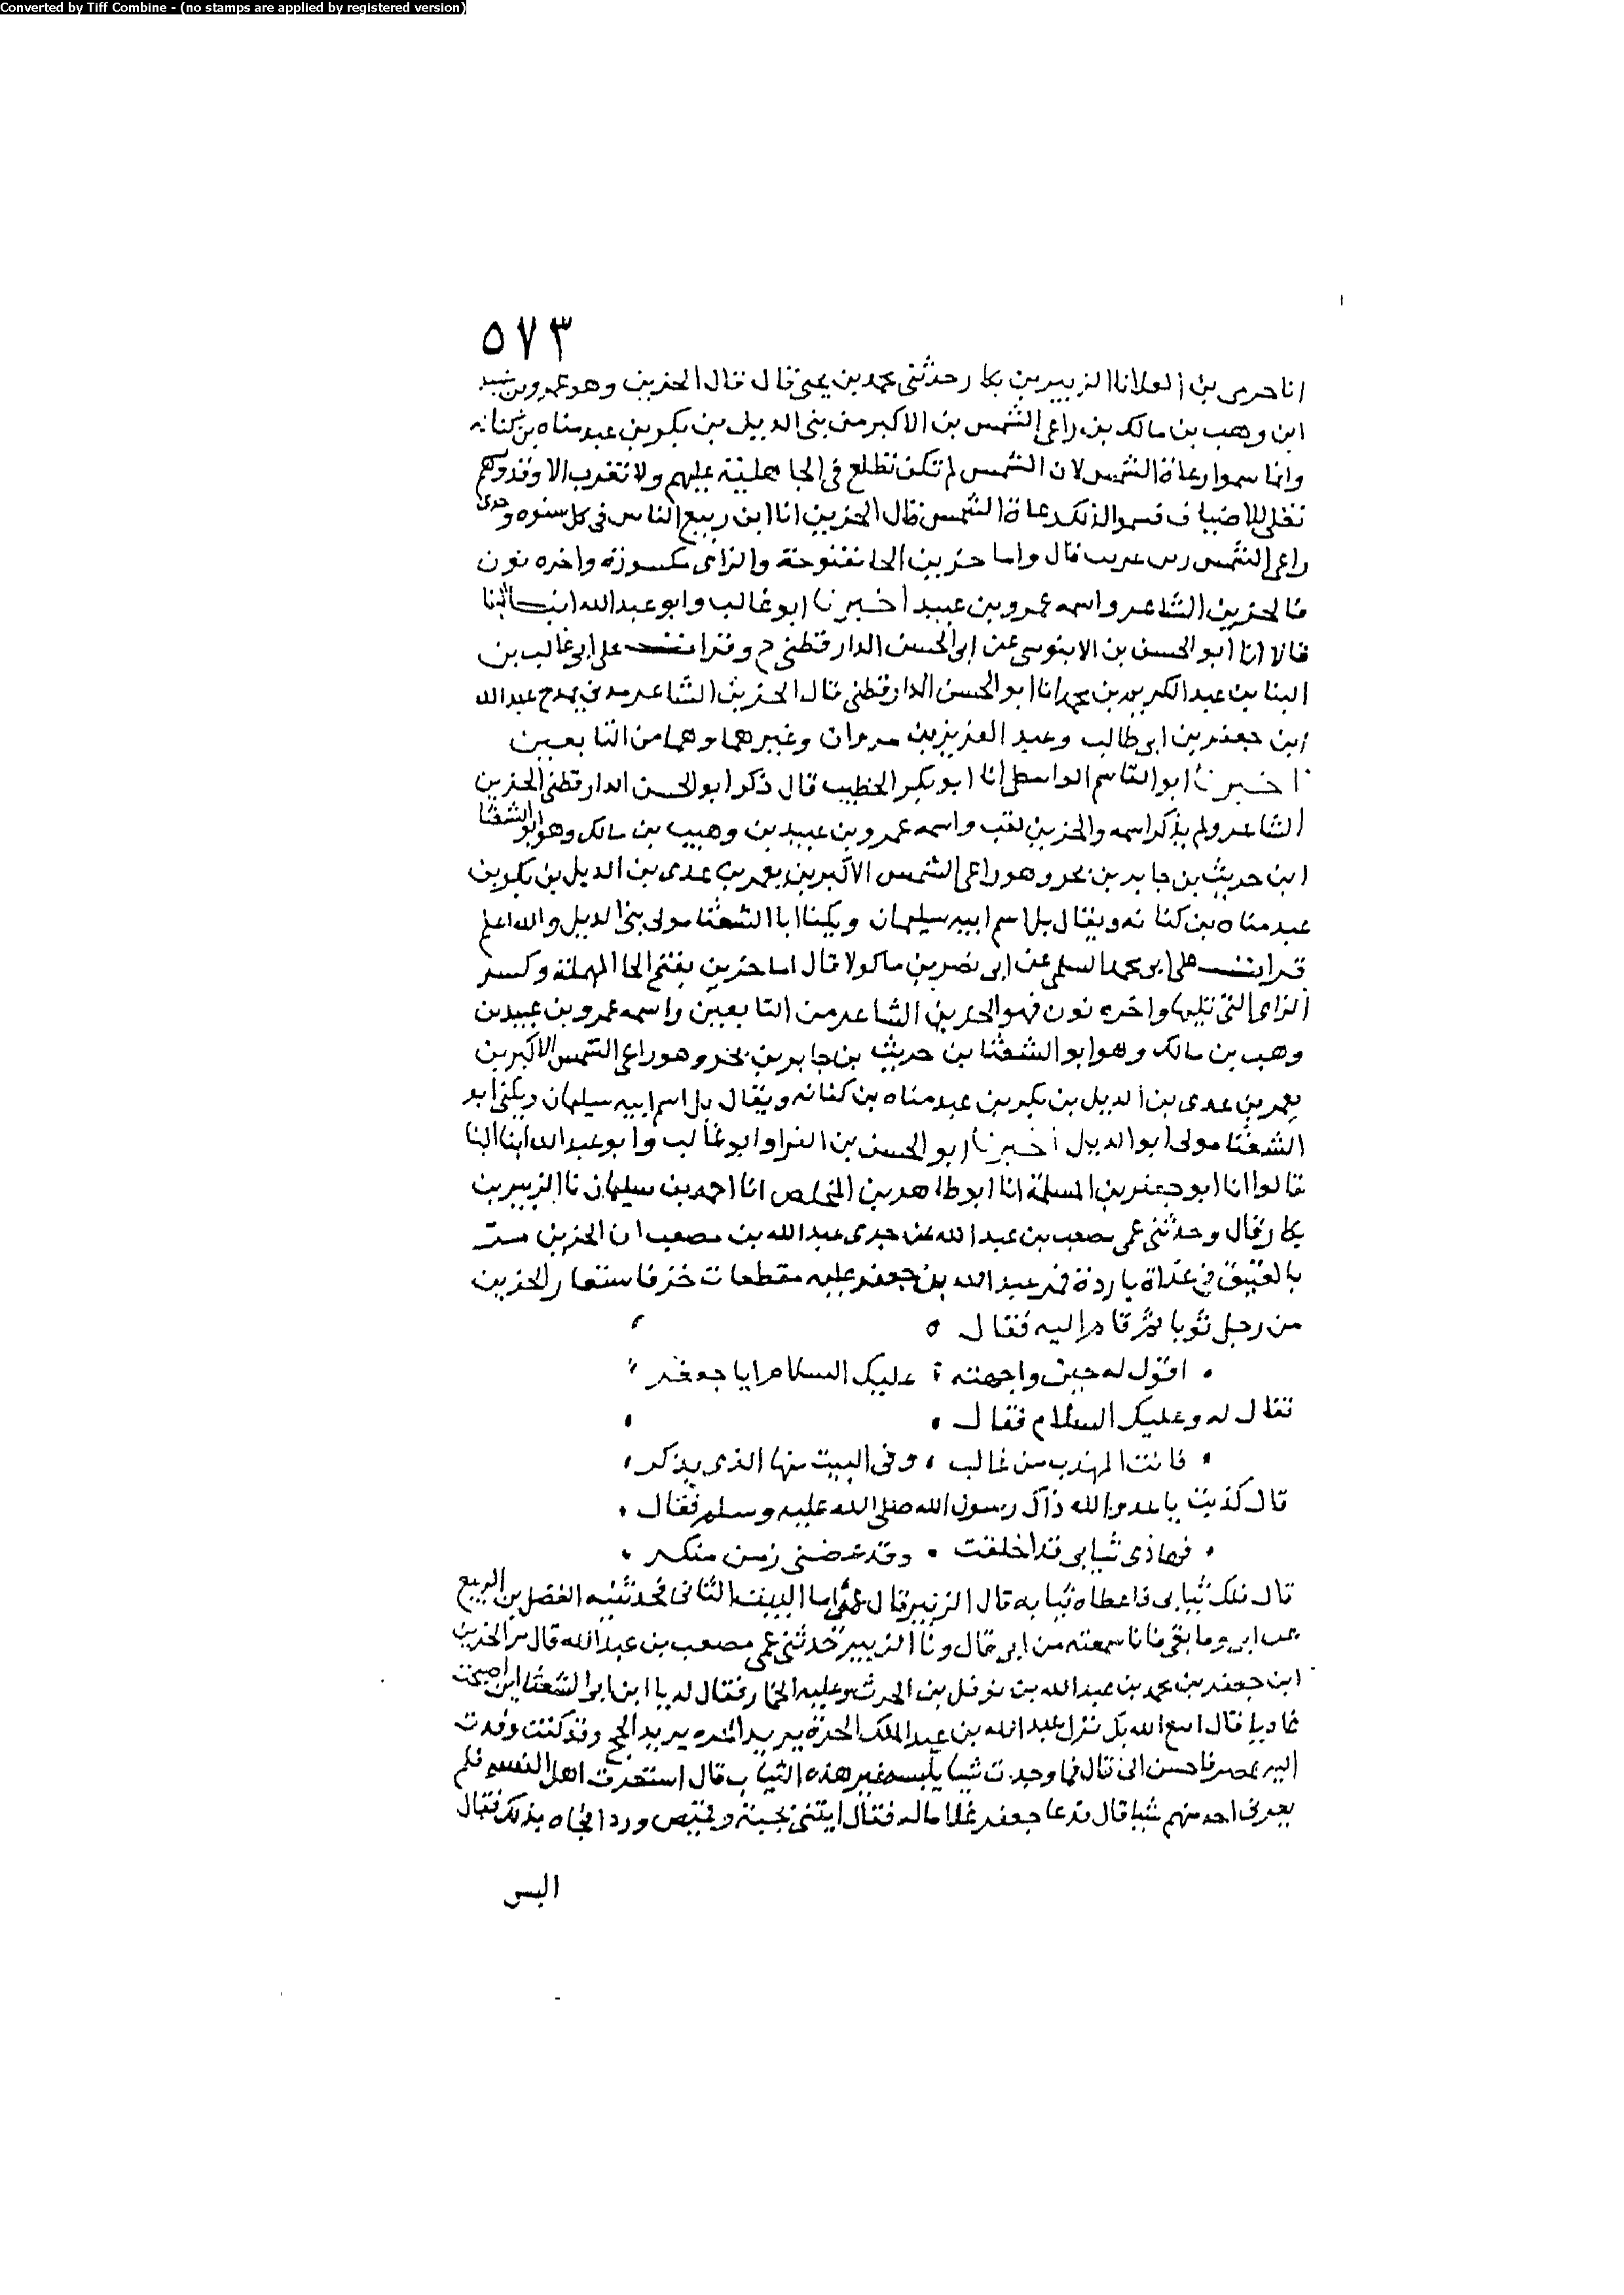 Converted by Tiff Combine - (no stamps are applied by registered version)
٥٧٣
انا حرمى بن العلا نا الزبير بن بكار حدثنى محمد بن يحيى قال قال الحزين وهو عمرو بن عبيد
ابن وهب بن مالك بن راعى الشمس بن الاكبر من بنى الديل بن بكر بن عبد مناه بن كنانه
وانما سموا رعاة الشمس لان الشمس لم تكن تطلع فى الجاهلية عليهم ولا تغرب الا وقدورهم
تغلى للاضياف فسموا لذلك رعاة الشمس فقال الحزين انا ابن ربيع الناس فى كل سنوه وجدى
راعى الشمس قال واما حزين الحا مفتوحة والزاى مكسورة واخره نون
فالحزين الشاعر واسمه عمرو بن عبيد اخبرنا ابو غالب وابو عبد الله ابنا البنا
قالا انا ابو الحسن بن الابنوسى عن ابى الحسن الدارقطنى ح وقرات على ابى غالب بن
البنا عن عبد الكريم بن محمد انا ابو الحسن الدارقطنى قال الحزين الشاعر مدنى يمدح عبد الله
ابن جعفر بن ابى طالب وعبد العزيز بن مروان وغيرهما وهما من التابعين
اخبرنا ابو القاسم الواسطى انا ابو بكر الخطيب قال ذكر ابو الحسن الدارقطنى الحزين
الشاعر ولم يذكر اسمه والحزين لقب واسمه عمرو بن عبيد بن وهيب بن مالك وهو ابو الشعثا
ابن حريث بن جابر بن بحر وهو راعى الشمس الاكبر بن يعمر بن عدى بن الديل بن بكر بن
عبد مناه بن كنانه ويقال بل اسم ابيه سليمان ويكنا ابا الشعثا مولى بنى الديل والله اعلم
قرات على ابو محمد السلمى عن ابى نصر بن ماكولا قال اما حزين بفتح الحا المهملة وكسر
الزاى التى تليها واخره نون فهو الحزين الشاعر من التابعين واسمه عمرو بن عبيد بن
وهب بن مالك وهو ابو الشعثا بن حريث بن جابر بن بحر وهو راعى الشمس الاكبر بن
يعمر بن عدى بن الديل بن بكر بن عبد مناه بن كنانه ويقال بل اسم ابيه سليمان ويكنى ابو
الشعثا مولى ابو الديل اخبرنا ابو الحسن بن الفرا وابو غالب وابو عبد الله ابنا البنا
قالوا انا ابو جعفر بن المسلمة انا ابو طاهر بن المخلص انا احمد بن سليمان نا الزبير بن
بكار قال وحدثنى عمى مصعب بن عبد الله عن جدى عبد الله بن مصعب ان الحزين مر
بالعقيق فى غداة باردة فمر عبد الله بن جعفر عليه مقطعات خز فاستعار الحزين
من رجل ثوبا ثم قام اليه فقال
اقول له حين واجهته عليك السلام ايا جعفر
فقال له وعليك السلام فقال
فانت المهذب من غالب وفى البيت منها الذى يذكر
قال كذبت يا عدو الله ذاك رسول الله صلى الله عليه وسلم فقال
فهاذى ثيابى قد اخلقت وقد عضنى زمن منكر
قال فلك ثيابى فاعطاه ثيابه قال الزبير قال عمى اما البيت الثانى فحدثنيه الفضل بن الربيع
عن ابى وما بقى فانا سمعته من ابى قال ونا الزبير حدثنى عمى مصعب بن عبد الله قال مر الحزين
ابن جعفر بن محمد بن عبد الله بن نوفل بن الحرث وعليه فقال له يا ابن ابو الشعثا اين اصبحت
غاديا قال امتع الله بك نزل عبد الله بن عبد الملك الحرة يريد الحج وقد كنت وفدت
اليه بمصر فاحسن الى قال فما وجدت شيا يلبسه غير هذه الثياب قال استعرت اهل فلم
يعرنى احد منهم شيا قال فدعا جعفر غلاما له فقال ايتنى بجبة وقميص وردا فجاه بذلك فقال
البس